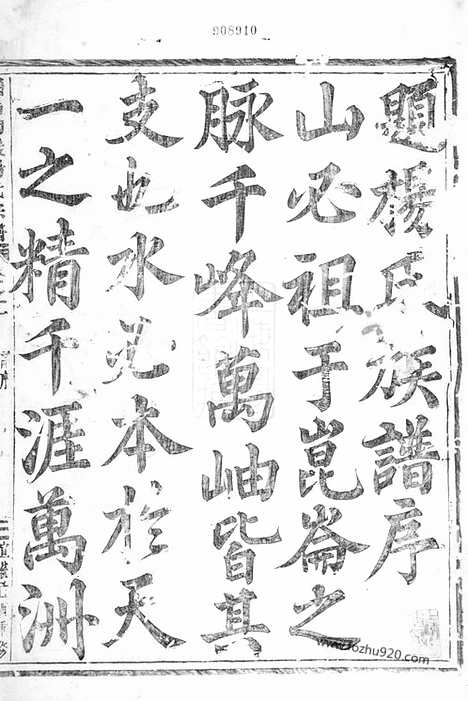 908910
題楊氏族譜序
山必祖于崑崙之
脉千峰萬岫皆其
支也水必本於天
一之精千涯萬洲
www.fozhu920.com